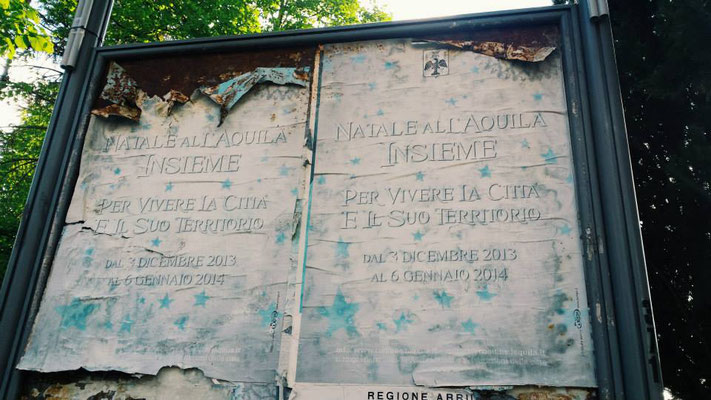 NATALE ALL'AQUILA
INSIEME
PER VIVERE LA CITTÀ
E IL SUO TERRITORIO
DAL 3 DICEMBRE 2013
AL 6 GENNAIO 2014
NATALE ALL'AQUILA
INSIEME
PER VIVERE LA CITTÀ
E IL SUO TERRITORIO
DAL 3 DICEMBRE 2013
AL 6 GENNAIO 2014
REGIONE